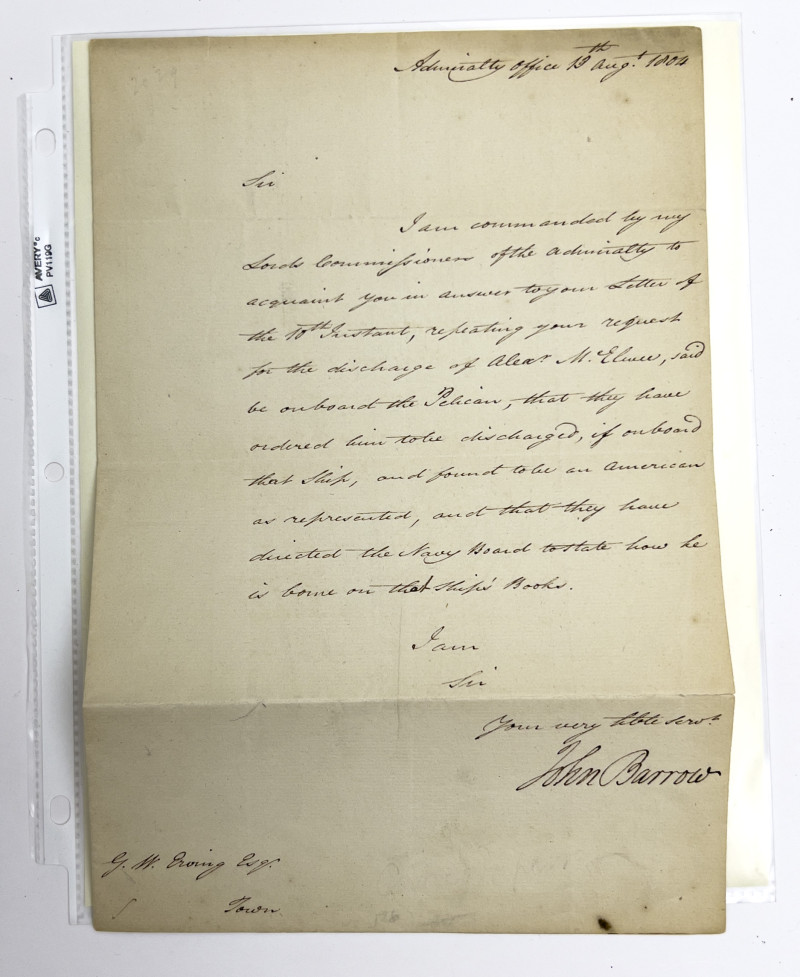 Admiralty Office 13th Augt. 1804
Sir
I am commanded by my
Lords Commissioners of the Admiralty to
acquaint you in answer to your Letter of
the 10th Instant, repeating your request
for the discharge of Alexr. McElwee, said
be onboard the Pelican, that they have
ordered him to be discharged, if onboard
that Ship, and found to be an American
as represented, and that they have
directed the Navy Board to state how he
is borne on that Ship's Books.
I am
Sir
Your very hble servt.
John Barrow
G. W. Erving Esqr.
Town
AVERY®
PV119G